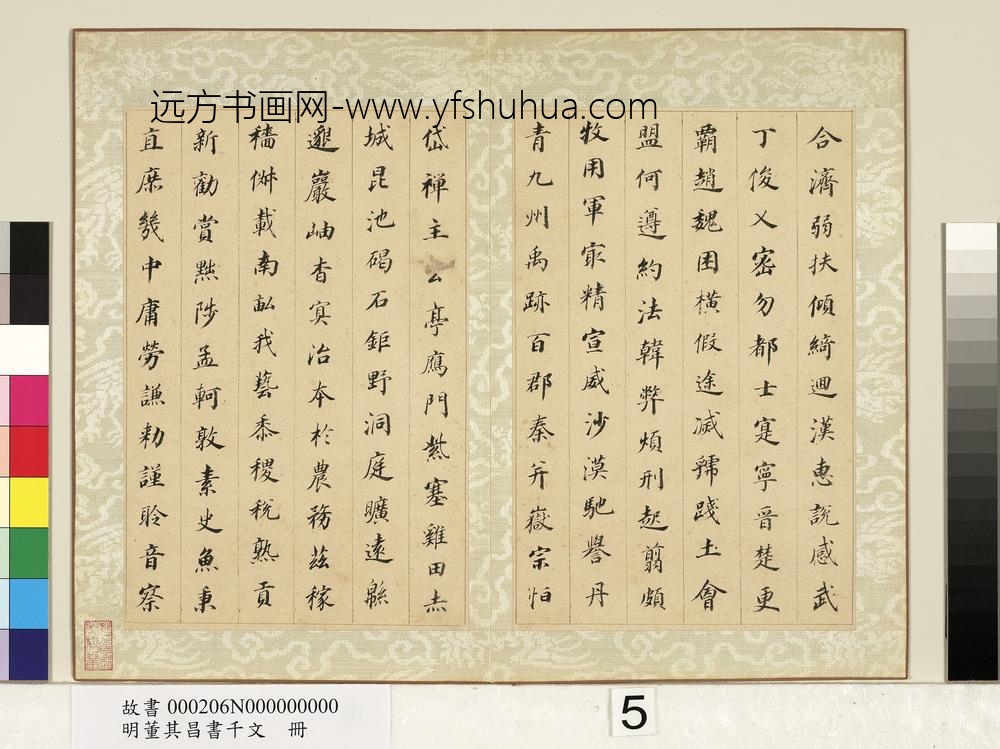 远方书画网-www.yfshuhua.com
合濟弱扶傾綺迴漢惠說感武
丁俊乂密勿都士寔寧晉楚更
霸趙魏困橫假途滅虢踐土會
盟何遵約法韓弊煩刑起翦頗
牧用軍最精宣威沙漠馳譽丹
青九州禹跡百郡秦并嶽宗恒
岱禪主云亭鴈門紫塞雞田赤
城昆池碣石鉅野洞庭曠遠緜
邈巖岫杳冥治本於農務茲稼
穡俶載南畝我藝黍稷稅熟貢
新勸賞黜陟孟軻敦素史魚秉
直庶幾中庸勞謙勑謹聆音察
故書 000206N000000000
明董其昌書千文 冊
5